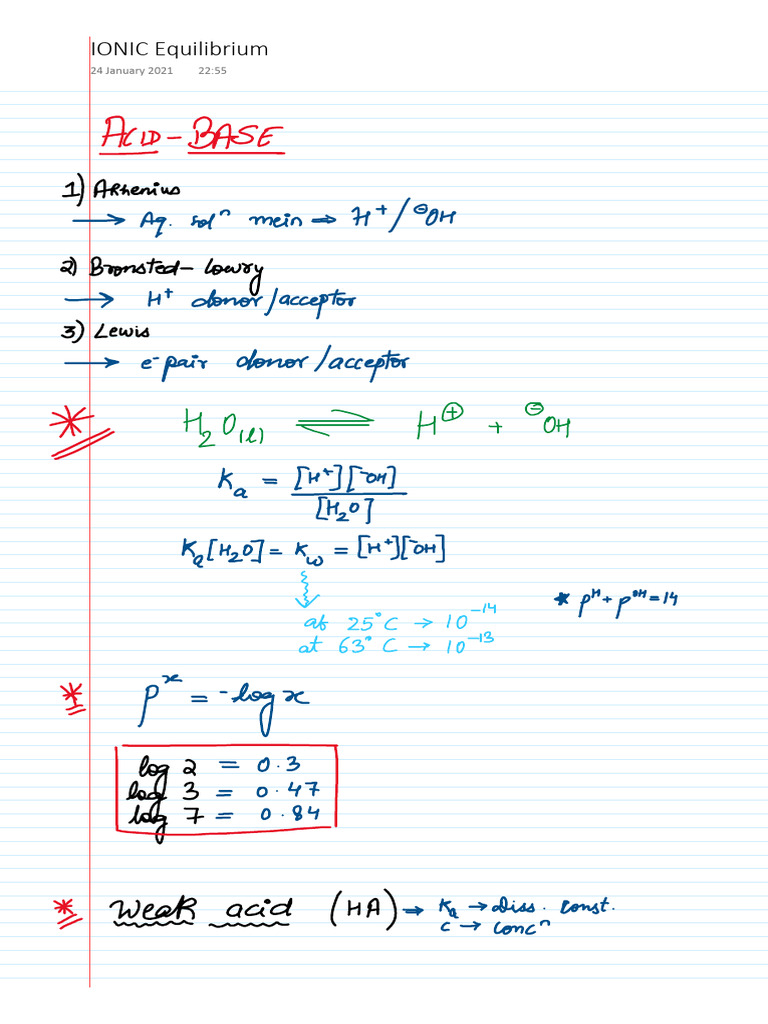 IONIC Equilibrium
24 January 2021 22:55
ACID - BASE
1) Arhenius
→ Aq. solⁿ mein ⇒ H⁺/⊖OH
2) Bronsted-Lowry
→ H⁺ donor/acceptor
3) Lewis
→ e⁻pair donor/acceptor
* H₂O(l) ⇌ H⊕ + ⊖OH
Kₐ = [H⁺][⁻OH] / [H₂O]
Kₐ[H₂O] = K_w = [H⁺][⁻OH]
* p^H + p^OH = 14
at 25°C → 10⁻¹⁴
at 63°C → 10⁻¹³
* p^x = -log x
log 2 = 0.3
log 3 = 0.47
log 7 = 0.84
* Weak acid (HA) → Kₐ → diss. const.
c → concⁿ